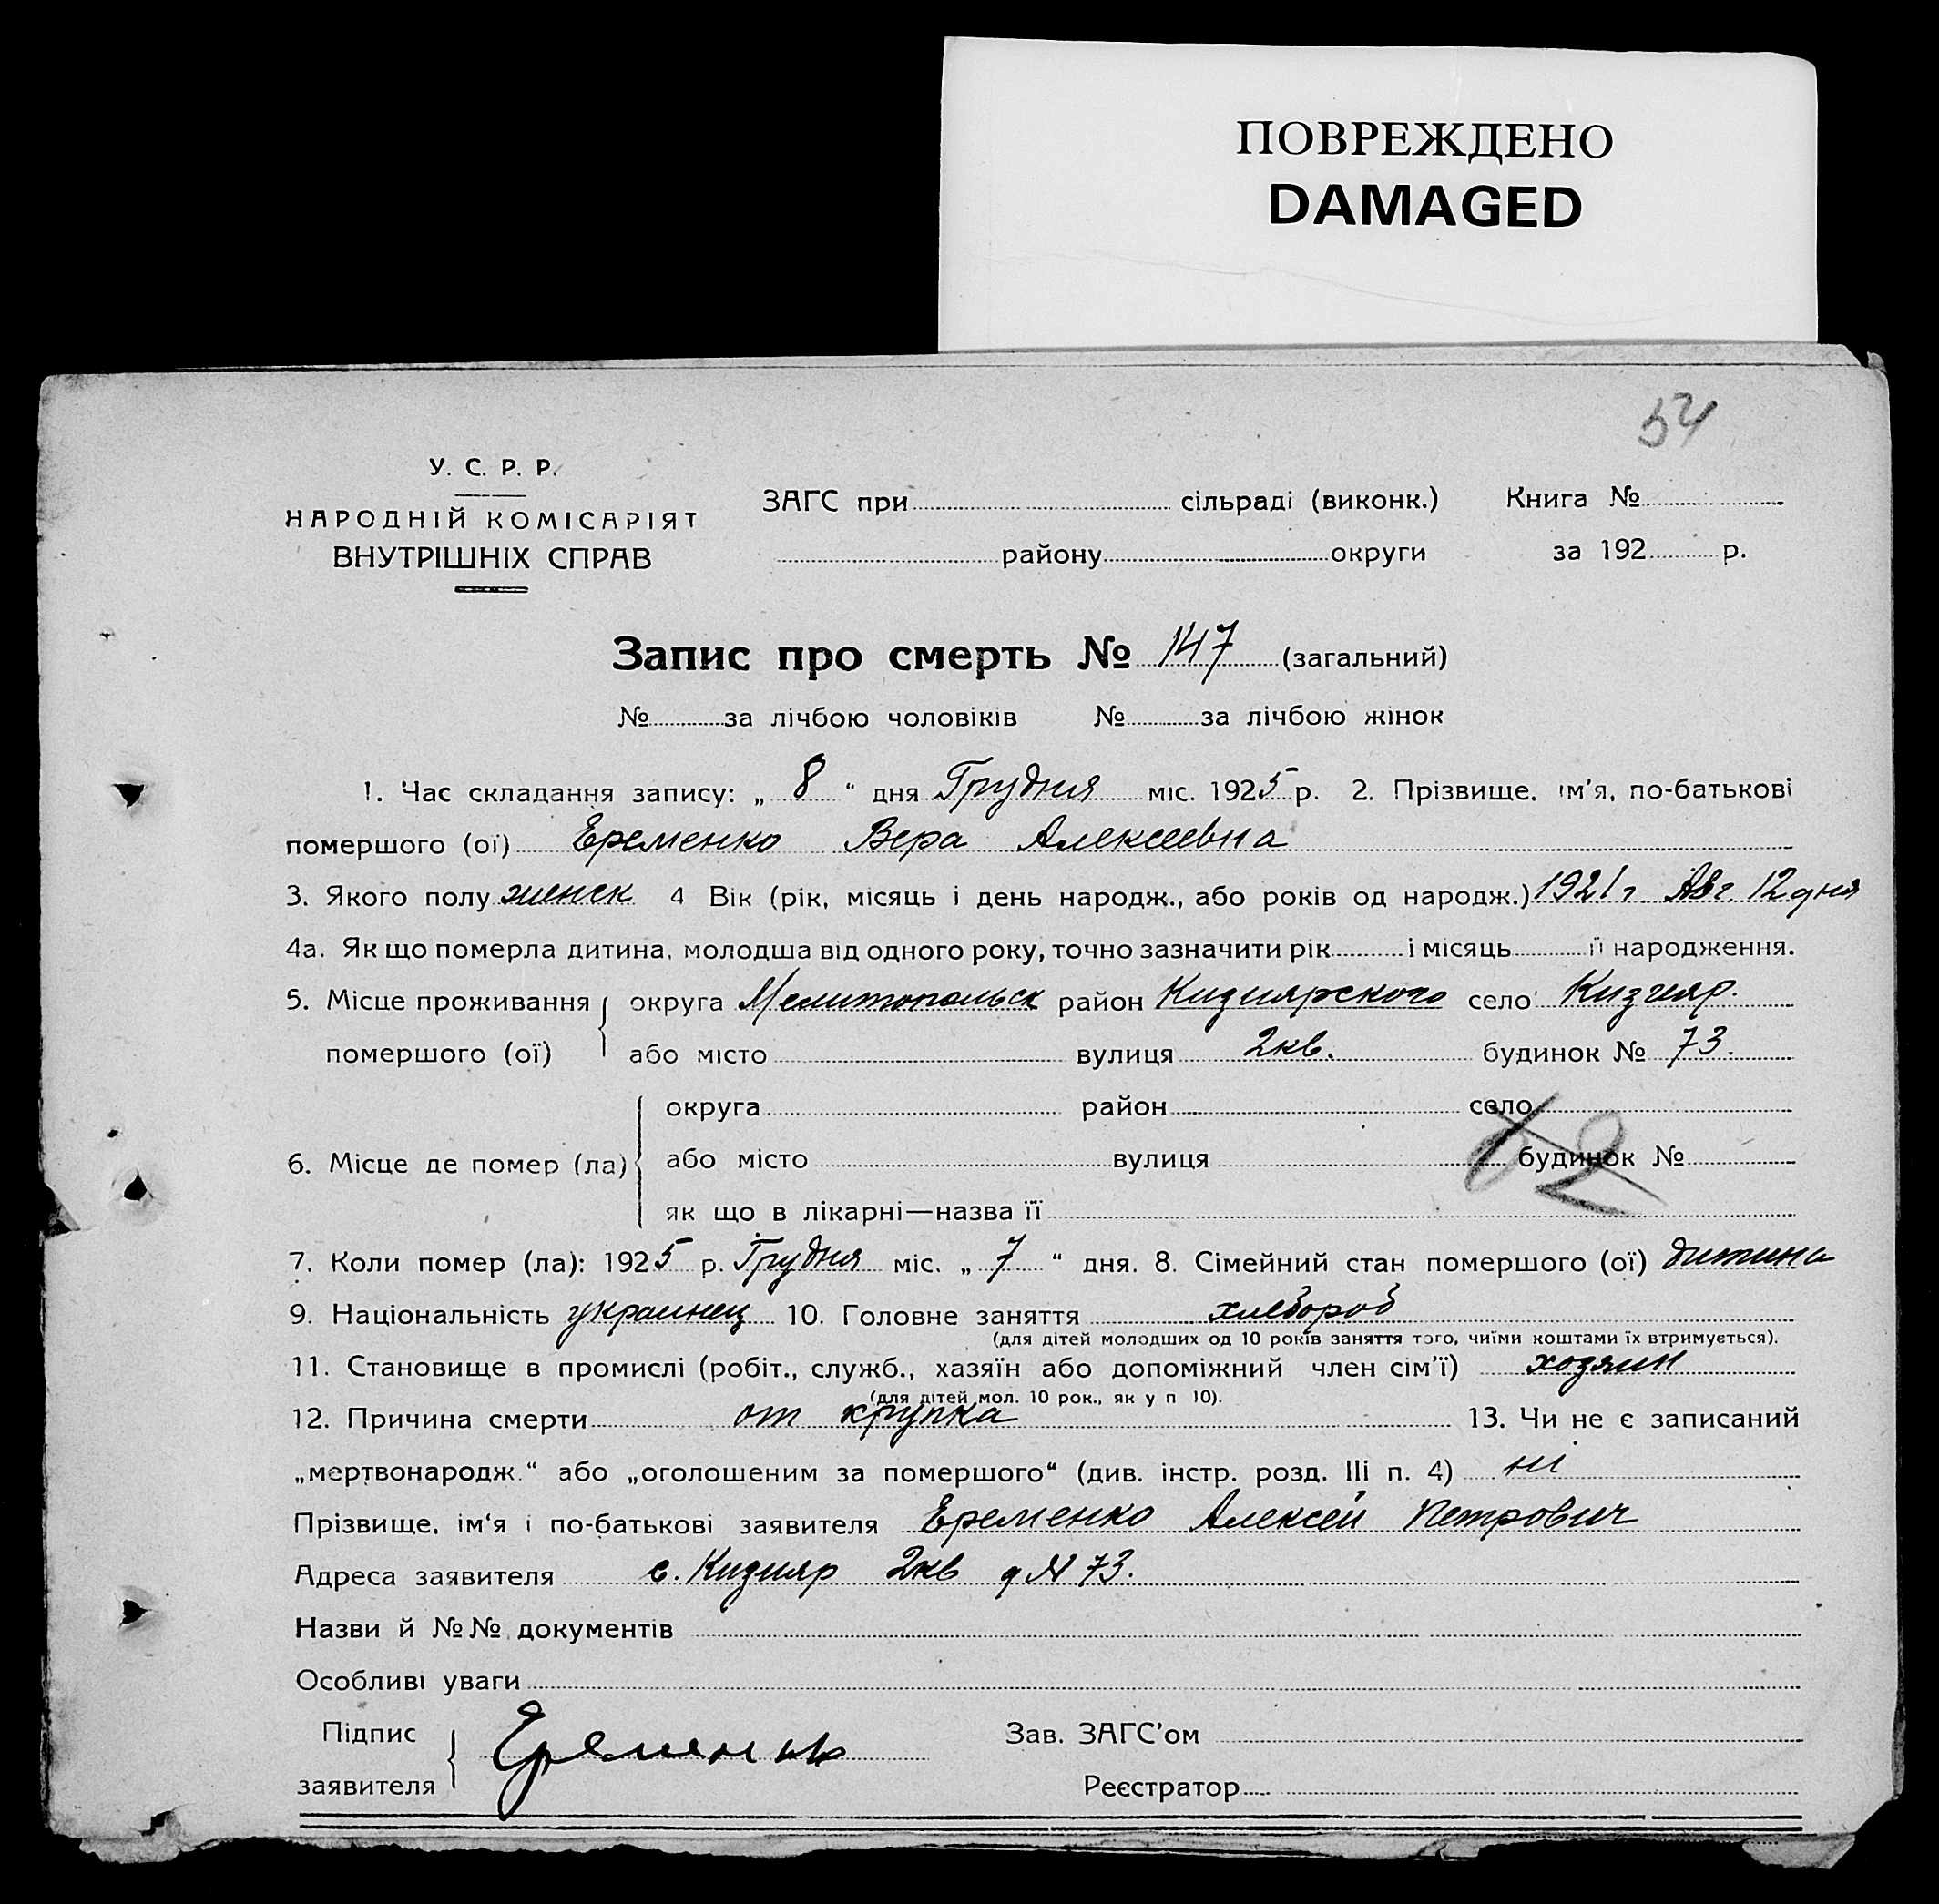 ПОВРЕЖДЕНО
DAMAGED
54
У. С. Р. Р.
НАРОДНІЙ КОМІСАРІЯТ
ВНУТРІШНІХ СПРАВ
ЗАГС при сільраді (виконк.) Книга №
району округи за 192 р.
Запис про смерть № 147 (загальний)
№ за лічбою чоловіків № за лічбою жінок
1. Час складання запису: „ 8 “ дня Грудня міс. 1925 р. 2. Прізвище, ім'я, по-батькові
помершого (ої) Еременко Вера Алексеевна
3. Якого полу женск 4 Вік (рік, місяць і день народж., або років од народж.) 1921 г Авг. 12 дня
4а. Як що померла дитина, молодша від одного року, точно зазначити рік і місяць її народження.
5. Місце проживання округа Мелитопольск район Кизиярского село Кизияр.
помершого (ої) або місто вулиця 2кв. будинок № 73.
округа район село
6. Місце де помер (ла) або місто вулиця будинок №
як що в лікарні—назва її
7. Коли помер (ла): 1925 р. Грудня міс. „ 7 “ дня. 8. Сімейний стан помершого (ої) дитина
9. Національність украинец 10. Головне заняття хлебороб
(для дітей молодших од 10 років заняття того, чиїми коштами їх втримується).
11. Становище в промислі (робіт., служб., хазяїн або допоміжний член сім'ї) хозяин
(для дітей мол. 10 рок., як у п 10).
12. Причина смерти от крупка 13. Чи не є записаний
„мертвонародж.“ або „оголошеним за помершого“ (див. інстр. розд. III п. 4) ні
Прізвище, ім'я і по-батькові заявителя Еременко Алексей Петрович
Адреса заявителя с. Кизияр 2кв д N 73.
Назви й №№ документів
Особливі уваги
Підпис Еременко Зав. ЗАГС'ом
заявителя Реєстратор